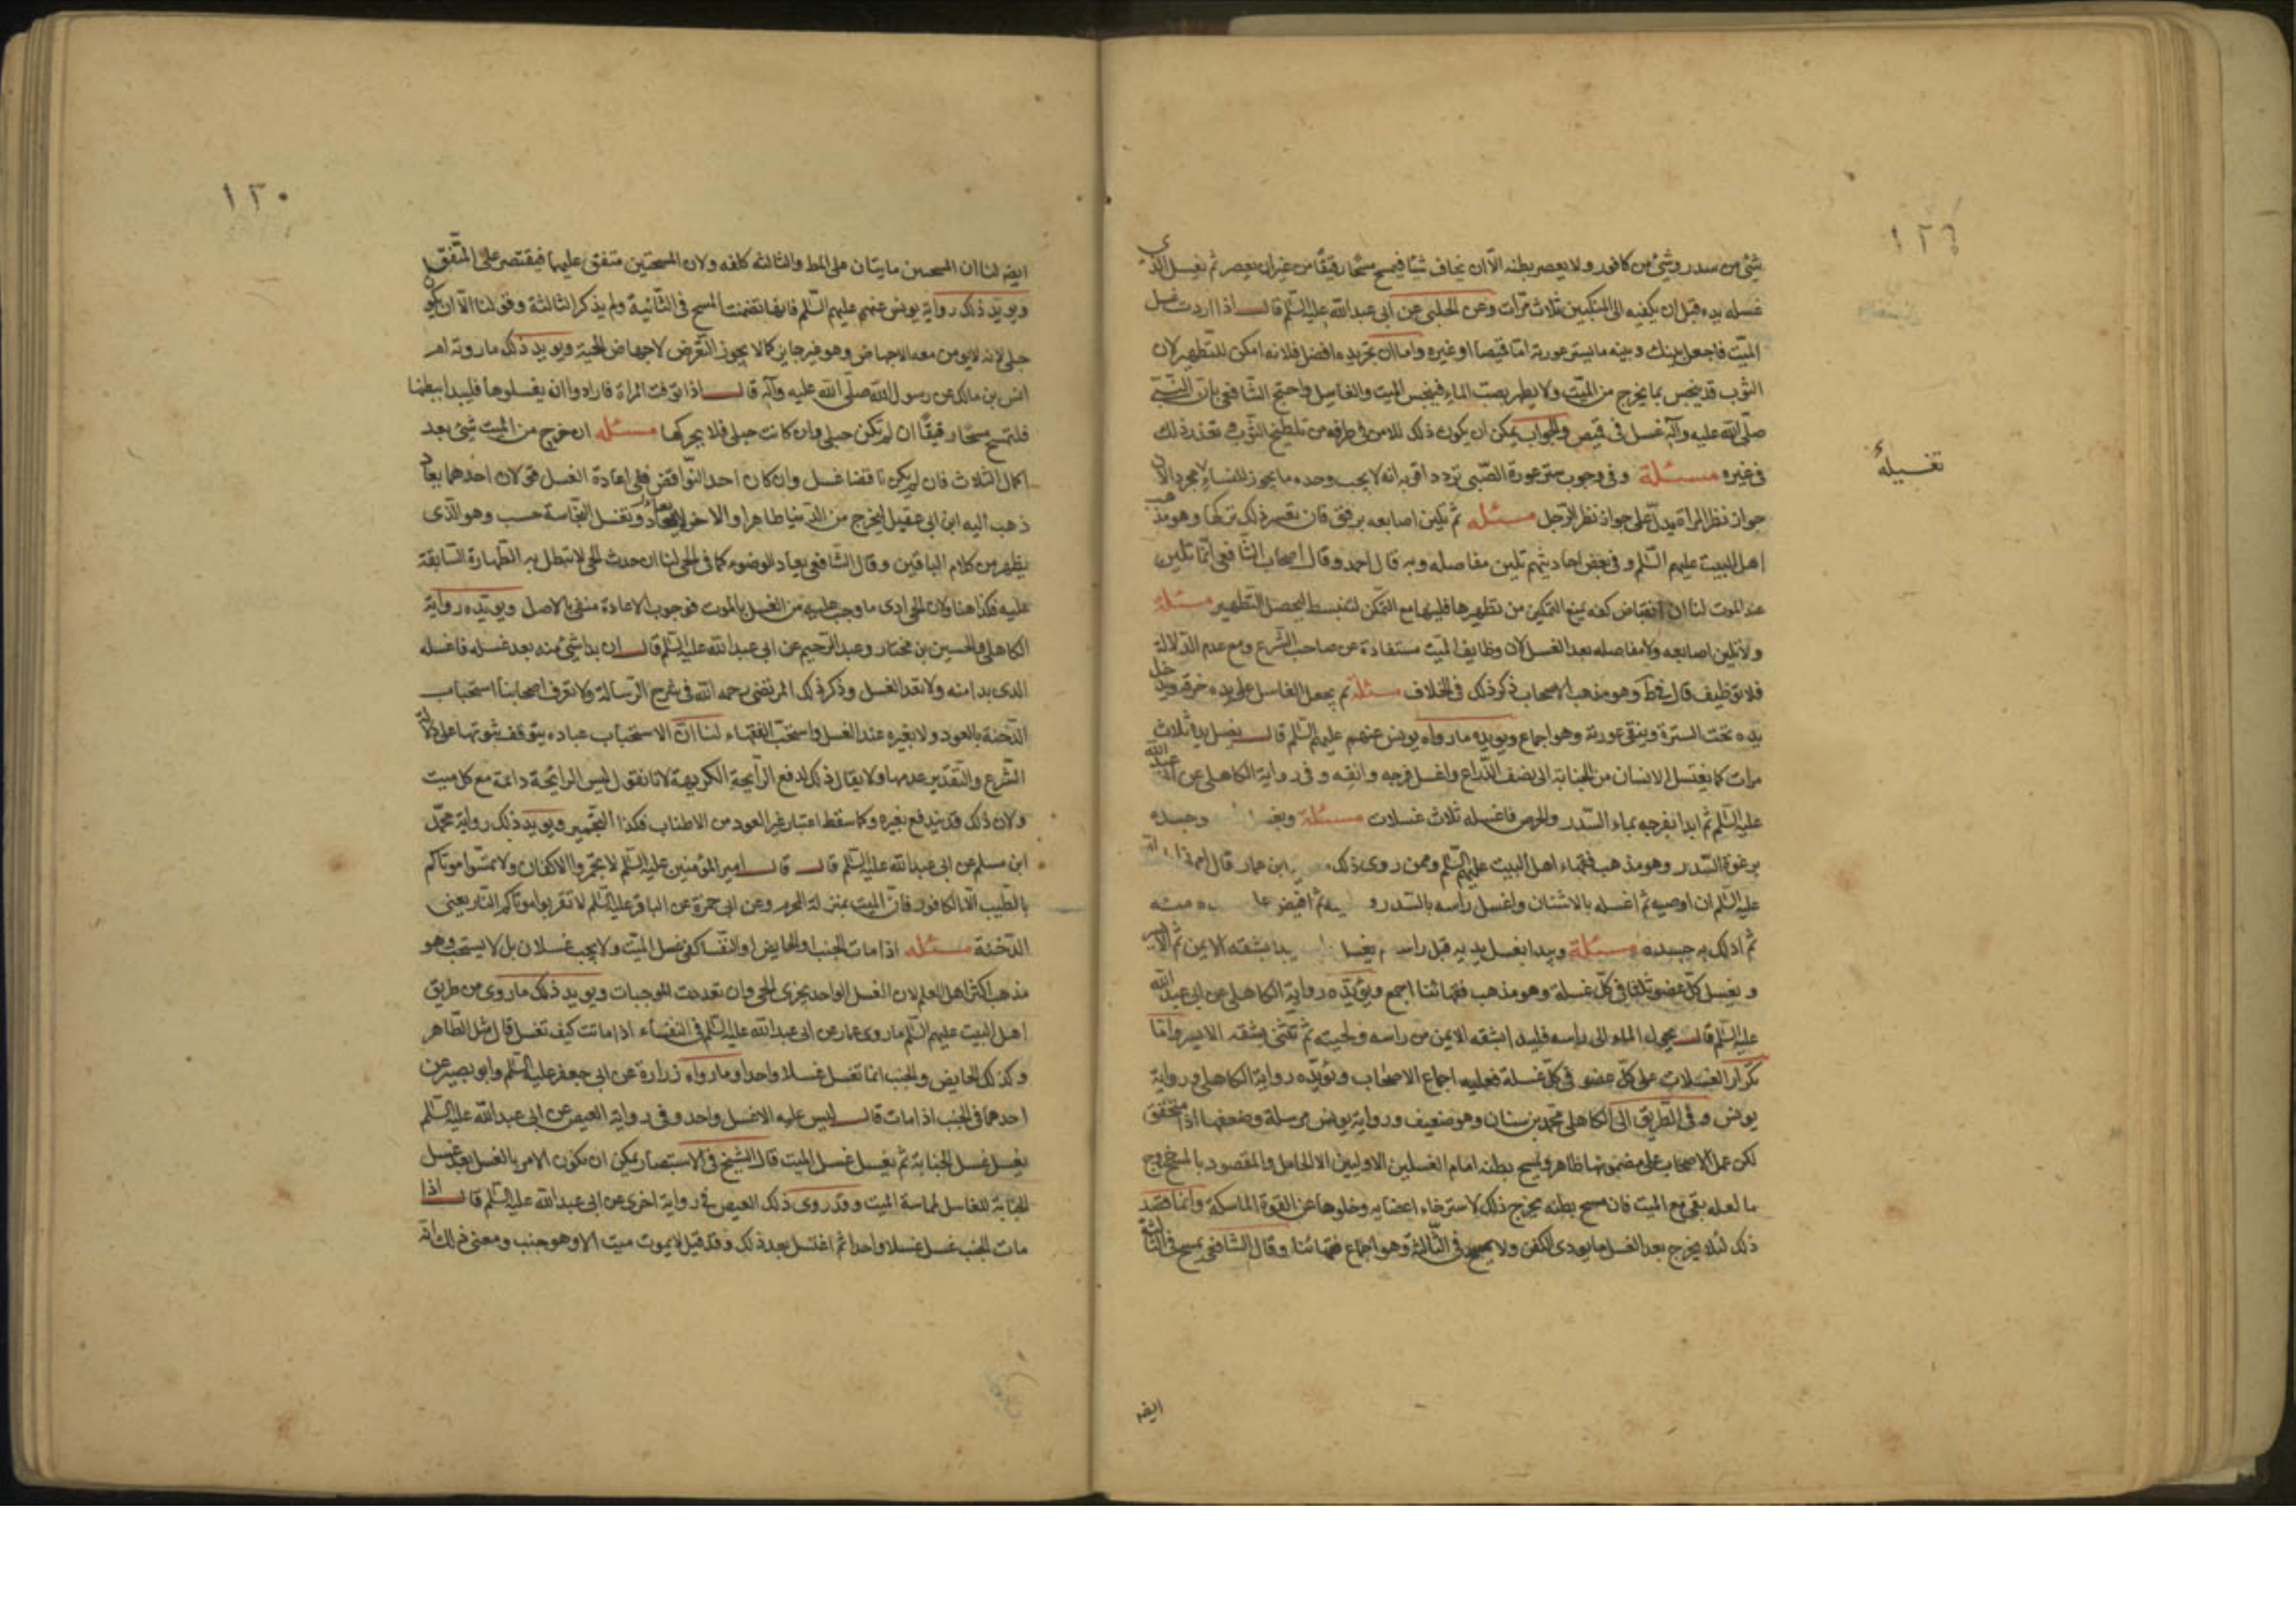 ١٢٩
شئ من سدر وشئ من كافور ولا يعصر بطنه الا ان يخاف شيئا فيمسح مسحا رقيقا من غير ان يعصر ثم يغسل الذى
غسله يده قبل ان يكفنه الى المنكبين ثلاث مرات وعن الحلبى عن ابى عبدالله عليه السلم قال اذا اردت غسل
الميت فاجعل بينك وبينه ما يستر عورته اما قميصا او غيره واما ان تجريده افضل فلانه امكن للتطهير لان
الثوب قد ينجس بما يخرج من الميت ولا يطهر بصب الماء فينجس الميت والغاسل واحتج الشافعى بان النبى
صلى الله عليه وآله غسل فى قميص والجواب يمكن ان يكون ذلك للامن فى طرفه من تلطيخ الثوب تعذر ذلك
فى غيره مسئلة وفى وجوب ستر عورة الصبى تردد اقربه انه لا يجب وحده ما يجوز للنساء لا مجرد الان
تغسيله
جواز نظر المراة يدل على جواز نظر الرجل مسئله ثم يلين اصابعه برفق فان تعسر ذلك تركها وهو مذهب
اهل البيت عليهم السلم وفى بعض احاديثهم تلين مفاصله وبه قال احمد وقال اصحاب الشافعى انما تلين
عند الموت لنا ان انقباض كفه يمنع التمكين من تطهيرها فليها مع التمكن لتنبسط ليحصل التطهير مسئلة
ولا تلين اصابعه ولا مفاصله بعد الغسل لان وظايف الميت مستفادة عن صاحب الشرع ومع عدم الدلالة
فلا توظيف قال وهو مذهب الاصحاب ذكر ذلك فى الخلاف مسئلة ثم يجعل الغاسل على يده خرقة ويدخل
يده تحت السترة وينقى عورته وهو اجماع ويويده ما رواه يونس عنهم عليهم السلم قال يغسل يديه ثلاث
مرات كما يغتسل الانسان من الجنابة الى نصف الذراع واغسل فرجه وانقه وفى رواية الكاهلى عن ابى عبدالله
عليه السلم ثم ابدا بفرجه بماء السدر والحرض فاغسله ثلاث غسلات مسئلة وجسده
برغوة السدر وهو مذهب فقهاء اهل البيت عليهم السلم وممن روى ذلك ابن عمار قال
عليه السلم ان اوصيه ثم اغسله بالاشنان واغسل راسه بالسدر و ثم افيض
ثم ادلك به جسده مسئلة ويبدا بغسل يديه قبل راسه بشقه الايمن ثم الايسر
ويغسل كل عضو ثلثا فى كل غسلة وهو مذهب فقهائنا اجمع ويؤيده رواية الكاهلى عن ابى عبدالله
عليه السلم قال يحول الماء الى راسه فليبدا بشقه الايمن من راسه ولحيته ثم تثنى بشقه الايسر واما
تكرار الغسلات على كل عضو فى كل غسلة فعليه اجماع الاصحاب وتؤيده رواية الكاهلى ورواية
يونس وفى الطريق الى الكاهلى محمد بن سنان وهو ضعيف ورواية يونس مرسلة وضعفها اذا متحقق
لكن عمل الاصحاب على مضمونها ظاهر ويمسح بطنه امام الغسلين الاوليين الا الحامل والمقصود بالمسح خروج
ما لعله بقى مع الميت فان مسح بطنه يخرج ذلك لاسترخاء اعضايه وخلوها عن القوة الماسكة وانما قصد
ذلك لئلا يخرج بعد الغسل ما يوذى الكفن ولا يمسح فى الثالثة وهو اجماع فقهائنا وقال الشافعى يمسح فى الثالثة
ايضا
١٣٠
ايضا لنا ان المسحتين ماتيتان على المط والثالثه كلفه ولان المسحتين متفق عليهما فيقتصر على المتفق
ويويد ذلك رواية يونس عنهم عليهم السلم فانها تضمنت المسح فى الثانية ولم يذكر الثالثة وقولنا الا ان يكون
حبلى لانه لا يومن معه الاجهاض وهو غير جايز كما لا يجوز التعرض لاجهاض الحية ويويد ذلك ما روته ام
انس بن مالك عن رسول الله صلى الله عليه وآله قال اذا توفت المراة فارادوا ان يغسلوها فليبدا ببطنها
فلتمسح مسحا رقيقا ان لم تكن حبلى وان كانت حبلى فلا يحركها مسئله ان خرج من الميت شئ بعد
اكمال الثلاث فان لم يكن ناقضا غسل وان كان احد النواقض فلى اعادة الغسل قولان احدهما يعاد
ذهب اليه ابن ابى عقيل ليخرج من الدنيا طاهرا والاخر لا يعاد وتغسل النجاسة حسب وهو الذى
يظهر من كلام الباقين وقال الشافعى يعاد الوضوء كما فى الحى لنا ان حدث الحى لا تبطل به الطهارة السابقة
عليه فكذا هنا ولان الحى ادى ما وجب عليه من الغسل بالموت فوجوب الاعادة منفى بالاصل ويويده رواية
الكاهلى والحسين بن مختار وعبد الرحيم عن ابى عبدالله عليه السلم قال ان بدا شئ منه بعد غسله فاغسله
الذى بدا منه ولا تعد الغسل وذكر ذلك المرتضى رحمه الله فى شرح الرسالة ولا تعرف اصحابنا استحباب
الدخنة بالعود ولا بغيره عند الغسل واستحب الفقهاء لنا ان الاستحباب عباده يتوقف ثبوتها على دلالة
الشرع والتقدير عدمها ولا يقال ذلك لدفع الرايحة الكريهة لانا نقول ليس الرايحة دائمة مع كل ميت
ولان ذلك قد يندفع بغيره وكما سقط اعتبار غير العود من الاطناب فكذا التجمير ويويد ذلك رواية محمد
ابن مسلم عن ابى عبدالله عليه السلم قال قال امير المؤمنين عليه السلم لا تجمروا الاكفان ولا تمسوا موتاكم
بالطيب الا الكافور فان الميت بمنزلة المحرم وعن ابى حمزة عن الباقر عليه السلم لا تقربوا موتاكم النار يعنى
الدخنة مسئله اذا مات الجنب او الحايض او النفسا كفى غسل الميت ولا يجب غسلان بل لا يستحب وهو
مذهب اكثر اهل العلم لان الغسل الواحد يجزى الحى وان تعددت الموجبات ويويد ذلك ما روى من طريق
اهل البيت عليهم السلم ما روى عمار عن ابى عبدالله عليه السلم فى النفساء اذا ماتت كيف تغسل قال مثل الطاهر
وكذلك الحايض والجنب انما تغسل غسلا واحدا وما رواه زرارة عن ابى جعفر عليه السلم وابو بصير عن
احدهما فى الجنب اذا مات قال ليس عليه الا غسل واحد وفى رواية العيص عن ابى عبدالله عليه السلم
يغسل غسل الجنابة ثم يغسل غسل الميت قال الشيخ فى الاستبصار يمكن ان يكون الامر بالغسل بعد غسل
الجنابة للغاسل لماسة الميت وقد روى ذلك العيص فى رواية اخرى عن ابى عبدالله عليه السلم قال اذا
مات الجنب غسل غسلا واحدا ثم اغتسل بعد ذلك وقد قيل لا يموت ميت الا وهو جنب ومعنى ذلك انه